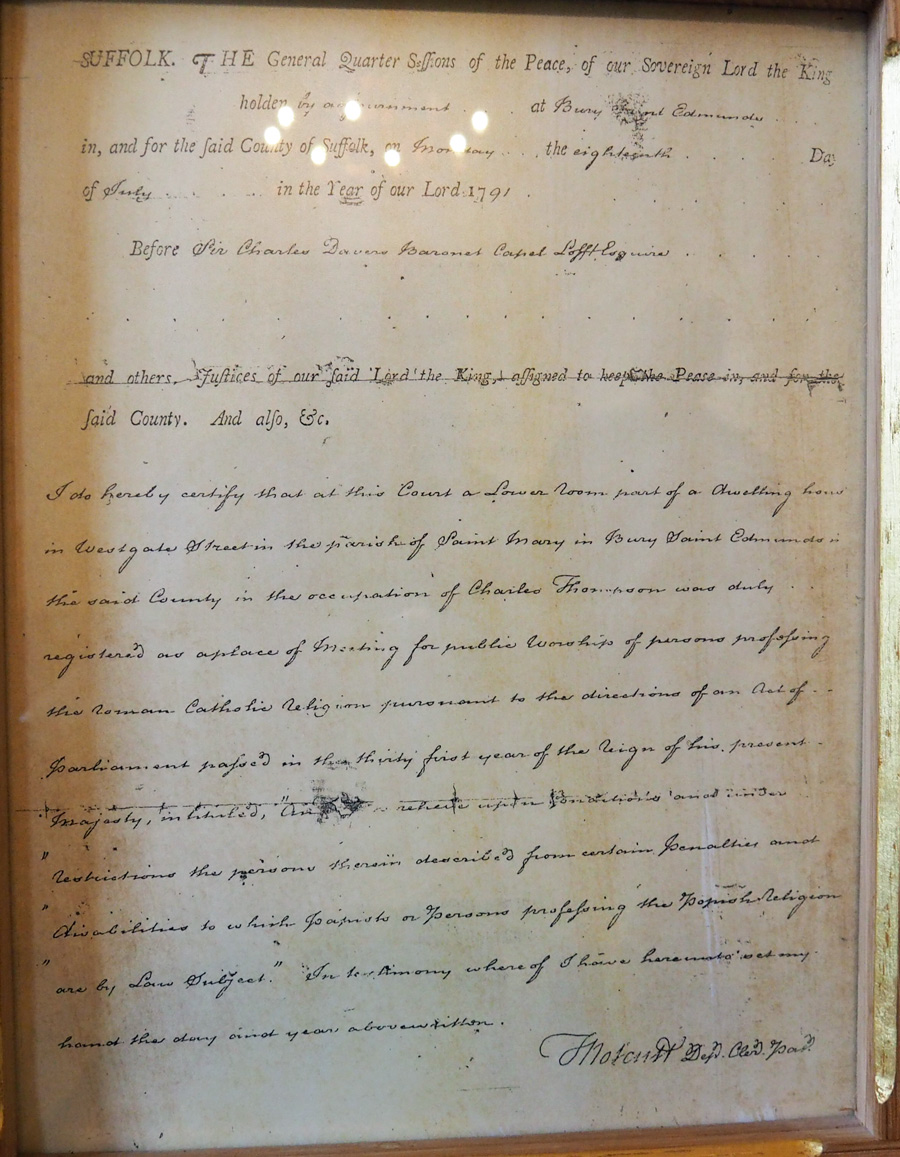 SUFFOLK. THE General Quarter Seſſions of the Peace, of our Sovereign Lord the King
holden by adjournment at Bury Saint Edmunds
in, and for the ſaid County of Suffolk, on Monday the eighteenth Day
of July in the Year of our Lord 1791
Before Sir Charles Davers Baronet Capel Lofft Esquire
and others, Juſtices of our ſaid Lord the King, aſſigned to keep the Peace in, and for the
ſaid County. And alſo, &c.
I do hereby certify that at this Court a Lower Room part of a Dwelling hous
in Westgate Street in the parish of Saint Mary in Bury Saint Edmunds i
the said County in the occupation of Charles Thompson was duly
registered as a place of Meeting for public Worship of persons profeſsing
the Roman Catholic Religion pursuant to the directions of an Act of
Parliament paſsed in the thirty first year of the Reign of his present
Majesty, intituled, "An relieve upon Conditions and under
" Restrictions the persons therein described from certain Penalties and
" Disabilities to which Papists or Persons profeſsing the Popish Religion
" are by Law Subject." In testimony whereof I have hereunto set my
hand the day and year above written.
Dep.